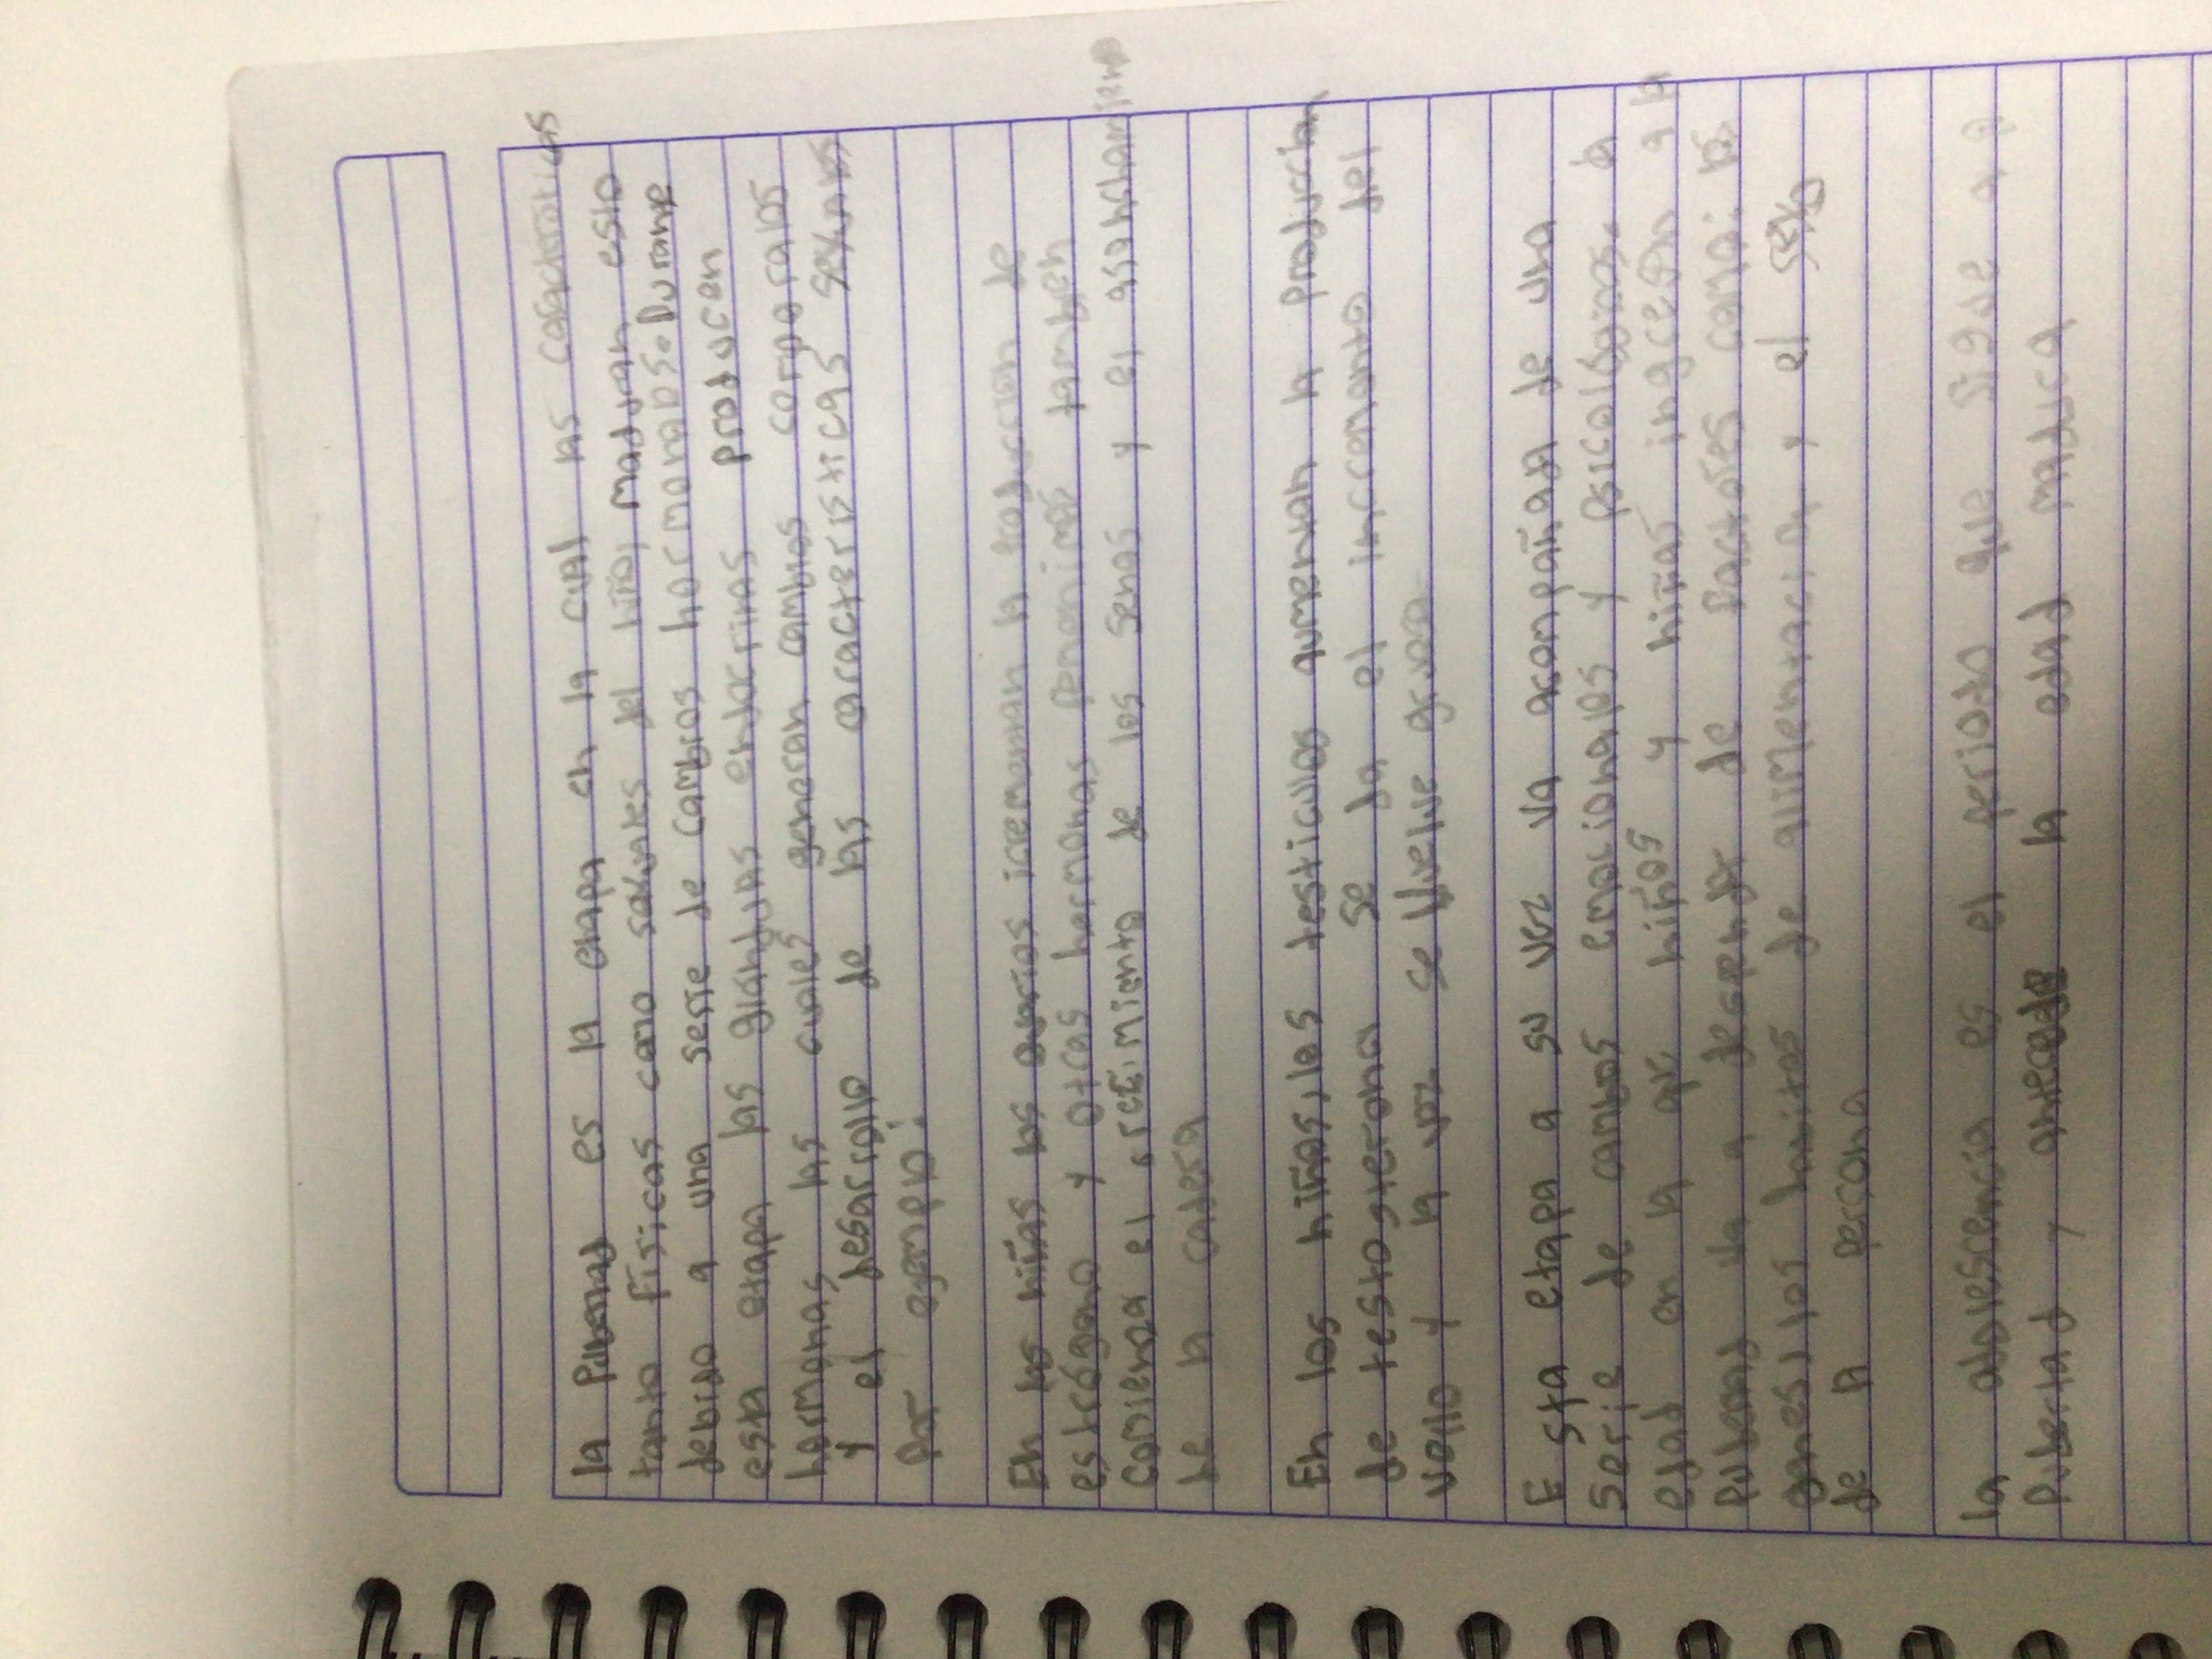 la Pubertad es la etapa en la cual las características
tanto físicas como sexuales del niño, maduran esto
debido a una serie de cambios hormonales. Durante
esta etapa las glándulas endocrinas producen
hormonas las cuales generan cambios corporales
y el desarrollo de las características sexuales
Por ejemplo:
En las niñas los ovarios icrementan la producción de
estrógeno y otras hormonas femeninas tambien
comienza el crecimiento de los senos y el ensanchamiento
de la cadera
En los niños, los testiculos aumentan la producción
de testosterona se da el incremento del
vello y la voz se vuelve gruesa
Esta etapa a su vez va acompañada de una
serie de cambios emocionales y psicológicos. la
edad en la que niños y niñas ingresan a la
pubertad va a depender de factores como: los
genes, los habitos de alimentación y el sexo
de la persona
la adolescencia es el periodo que sigue a la
Pubertad y antecede la edad madura